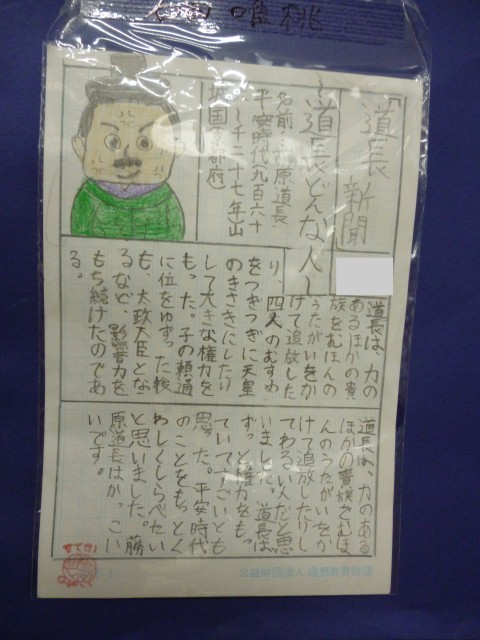 道長新聞
〜道長どんな人〜
名前藤原道長
平安時代九百六十
〜千二十七年山
城国京都府
道長は、力の
あるほかの貴
族をむほんの
うたがいをか
けて追放した
り、四人のむすめ
をつぎつぎに天皇
のきさきにしたり
して大きな権力を
もった。子の頼通
に位をゆずった後
も、太政大臣とな
るなど、影響力を
もち続けたのであ
る。
道長は、力のある
ほかの貴族をむほ
んのうたがいをか
けて追放したりし
てわるい人だと思
いました。道長は、
ずっと権力をもっ
ていてすごいとも
思った。平安時代
のことをもっとく
わしくしらべたい
と思いました。藤
原道長はかっこい
いです。
公益財団法人